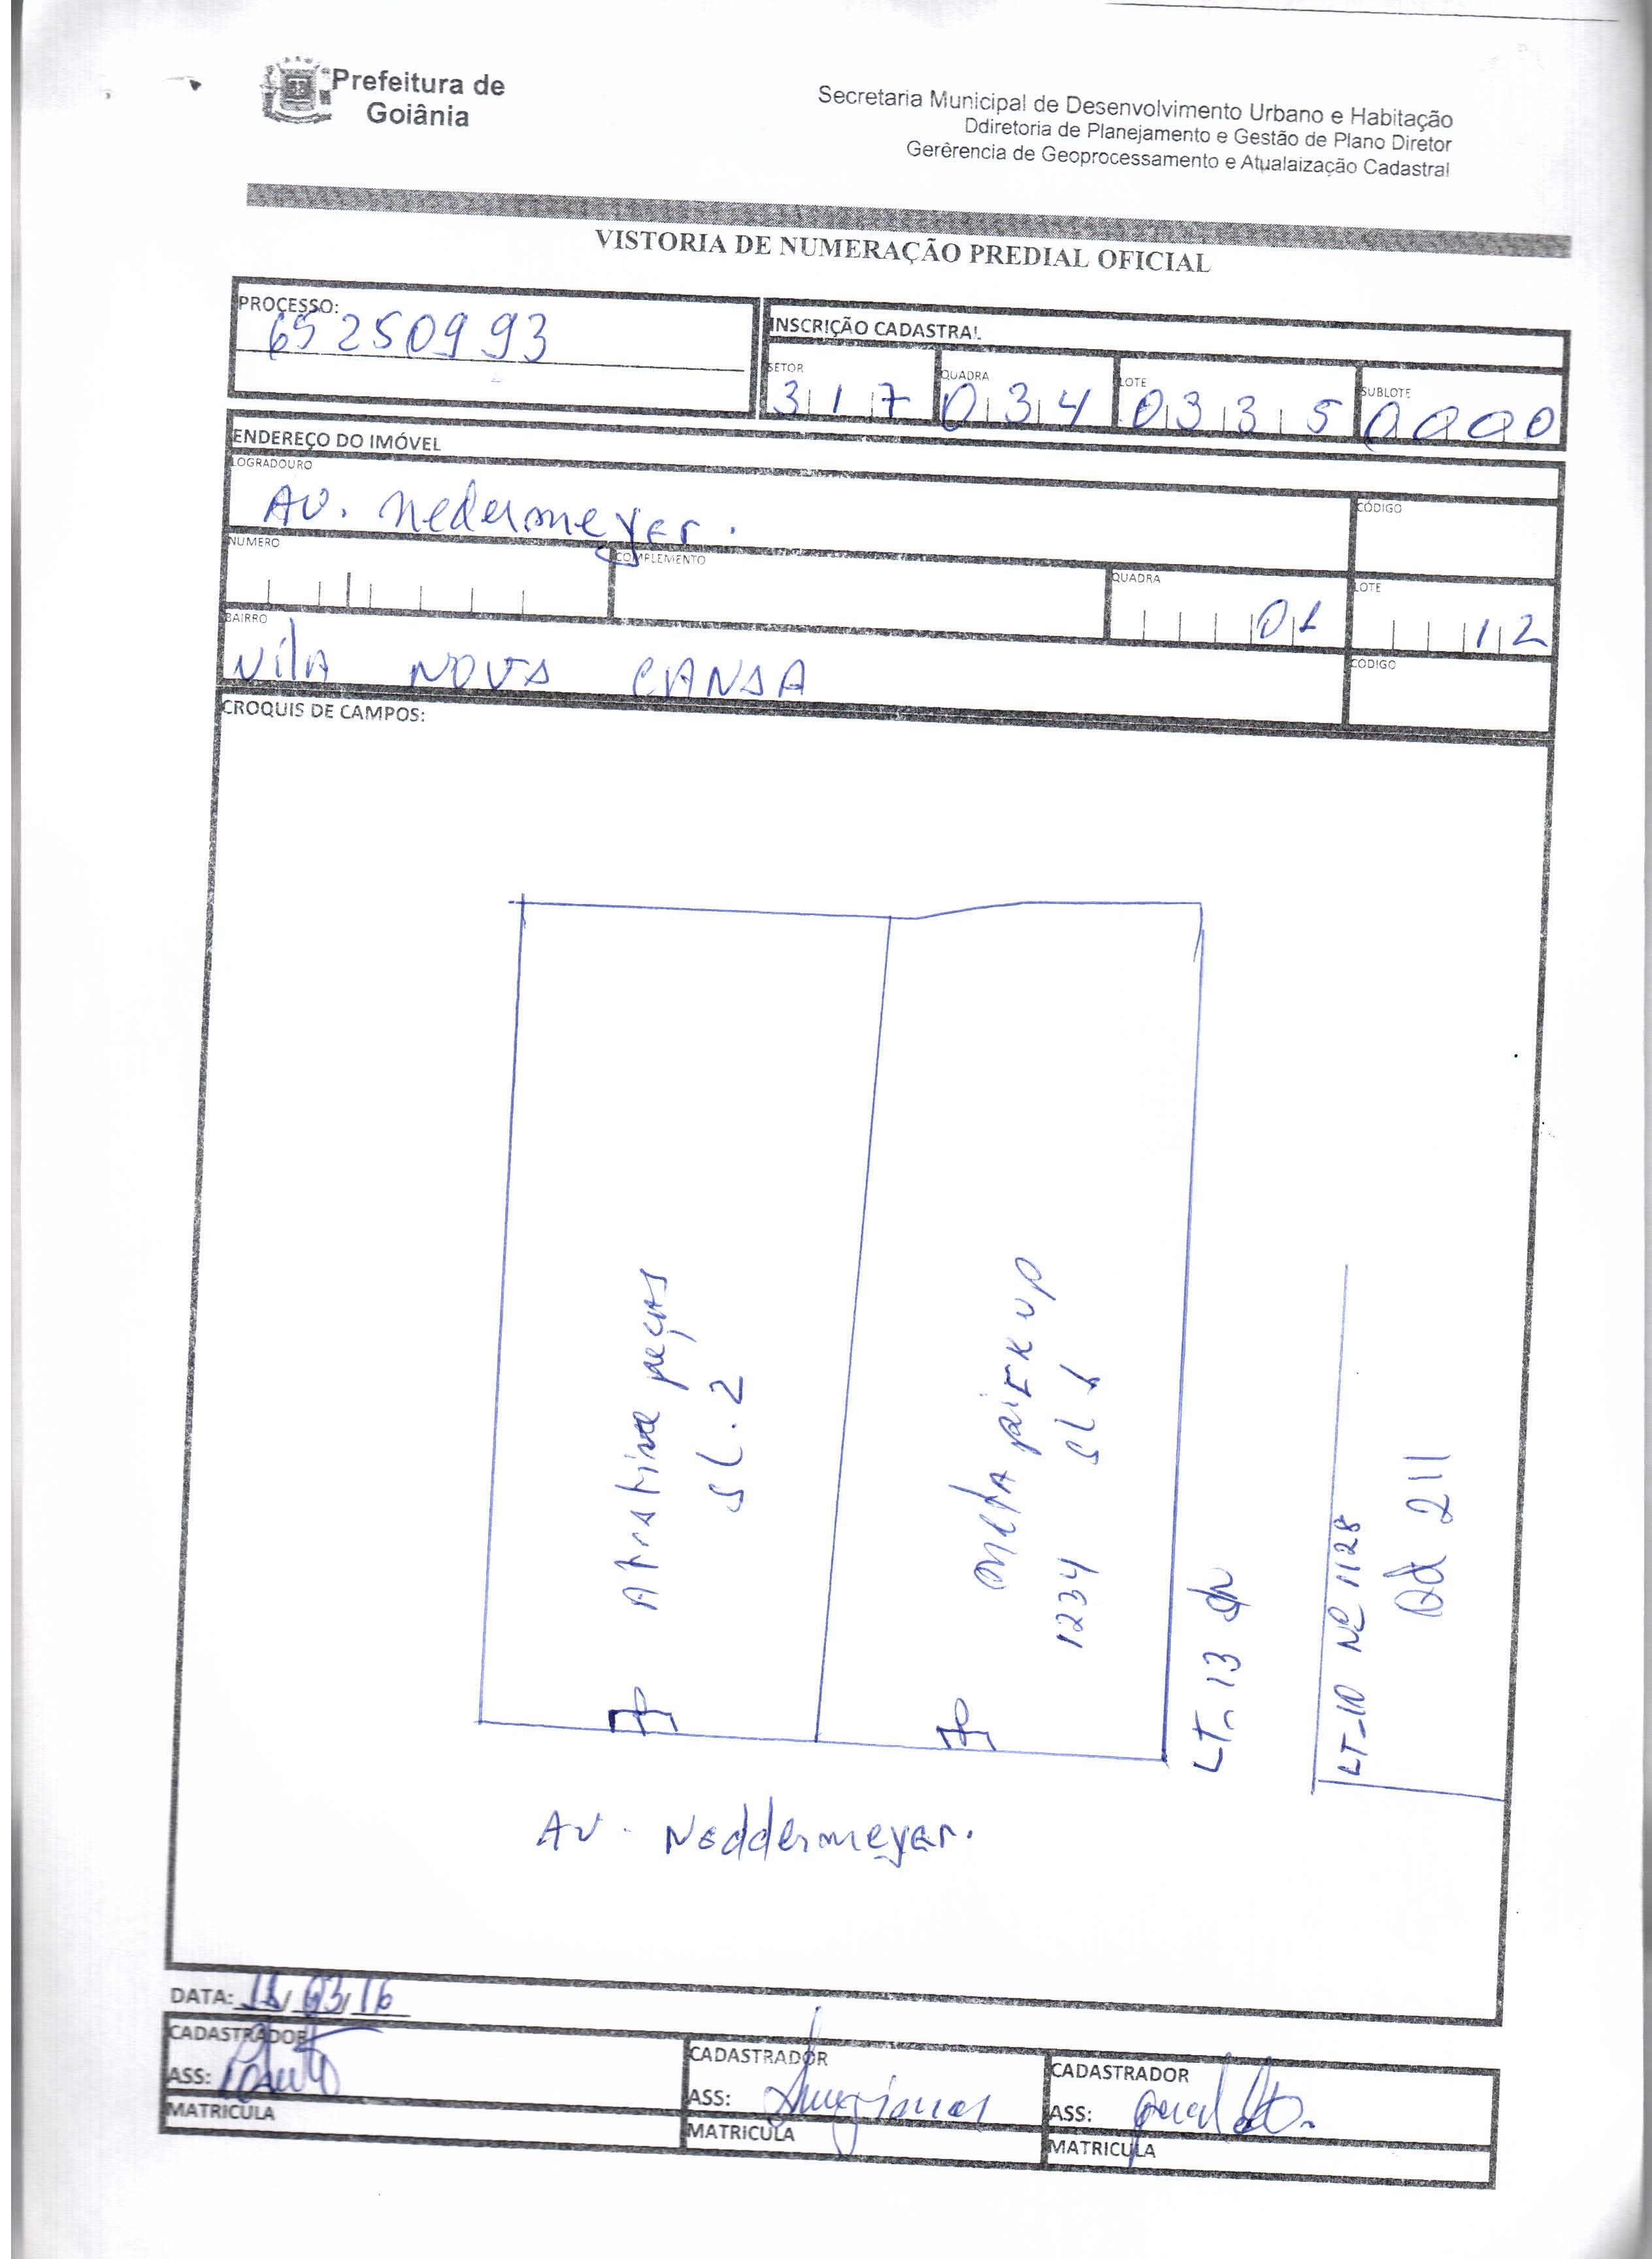 Prefeitura de
Goiânia
Secretaria Municipal de Desenvolvimento Urbano e Habitação
Ddiretoria de Planejamento e Gestão de Plano Diretor
Gerêrencia de Geoprocessamento e Atualaização Cadastral
VISTORIA DE NUMERAÇÃO PREDIAL OFICIAL
PROCESSO:
65250993
INSCRIÇÃO CADASTRAL
SETOR QUADRA LOTE SUBLOTE
317 034 0335 0000
ENDEREÇO DO IMÓVEL
LOGRADOURO
CÓDIGO
Av. Nedermeyer.
NUMERO COMPLEMENTO QUADRA LOTE
01 12
BAIRRO
CODIGO
Vila NOVA CANAA
CROQUIS DE CAMPOS:
peças
SL. 2
pick up
1234 SL 1
LT-13
LT-10 Nº 1128
Qd 211
Av. Neddermeyer.
DATA: 11/03/16
CADASTRADOR CADASTRADOR CADASTRADOR
ASS: ASS: ASS:
MATRICULA MATRICULA MATRICULA